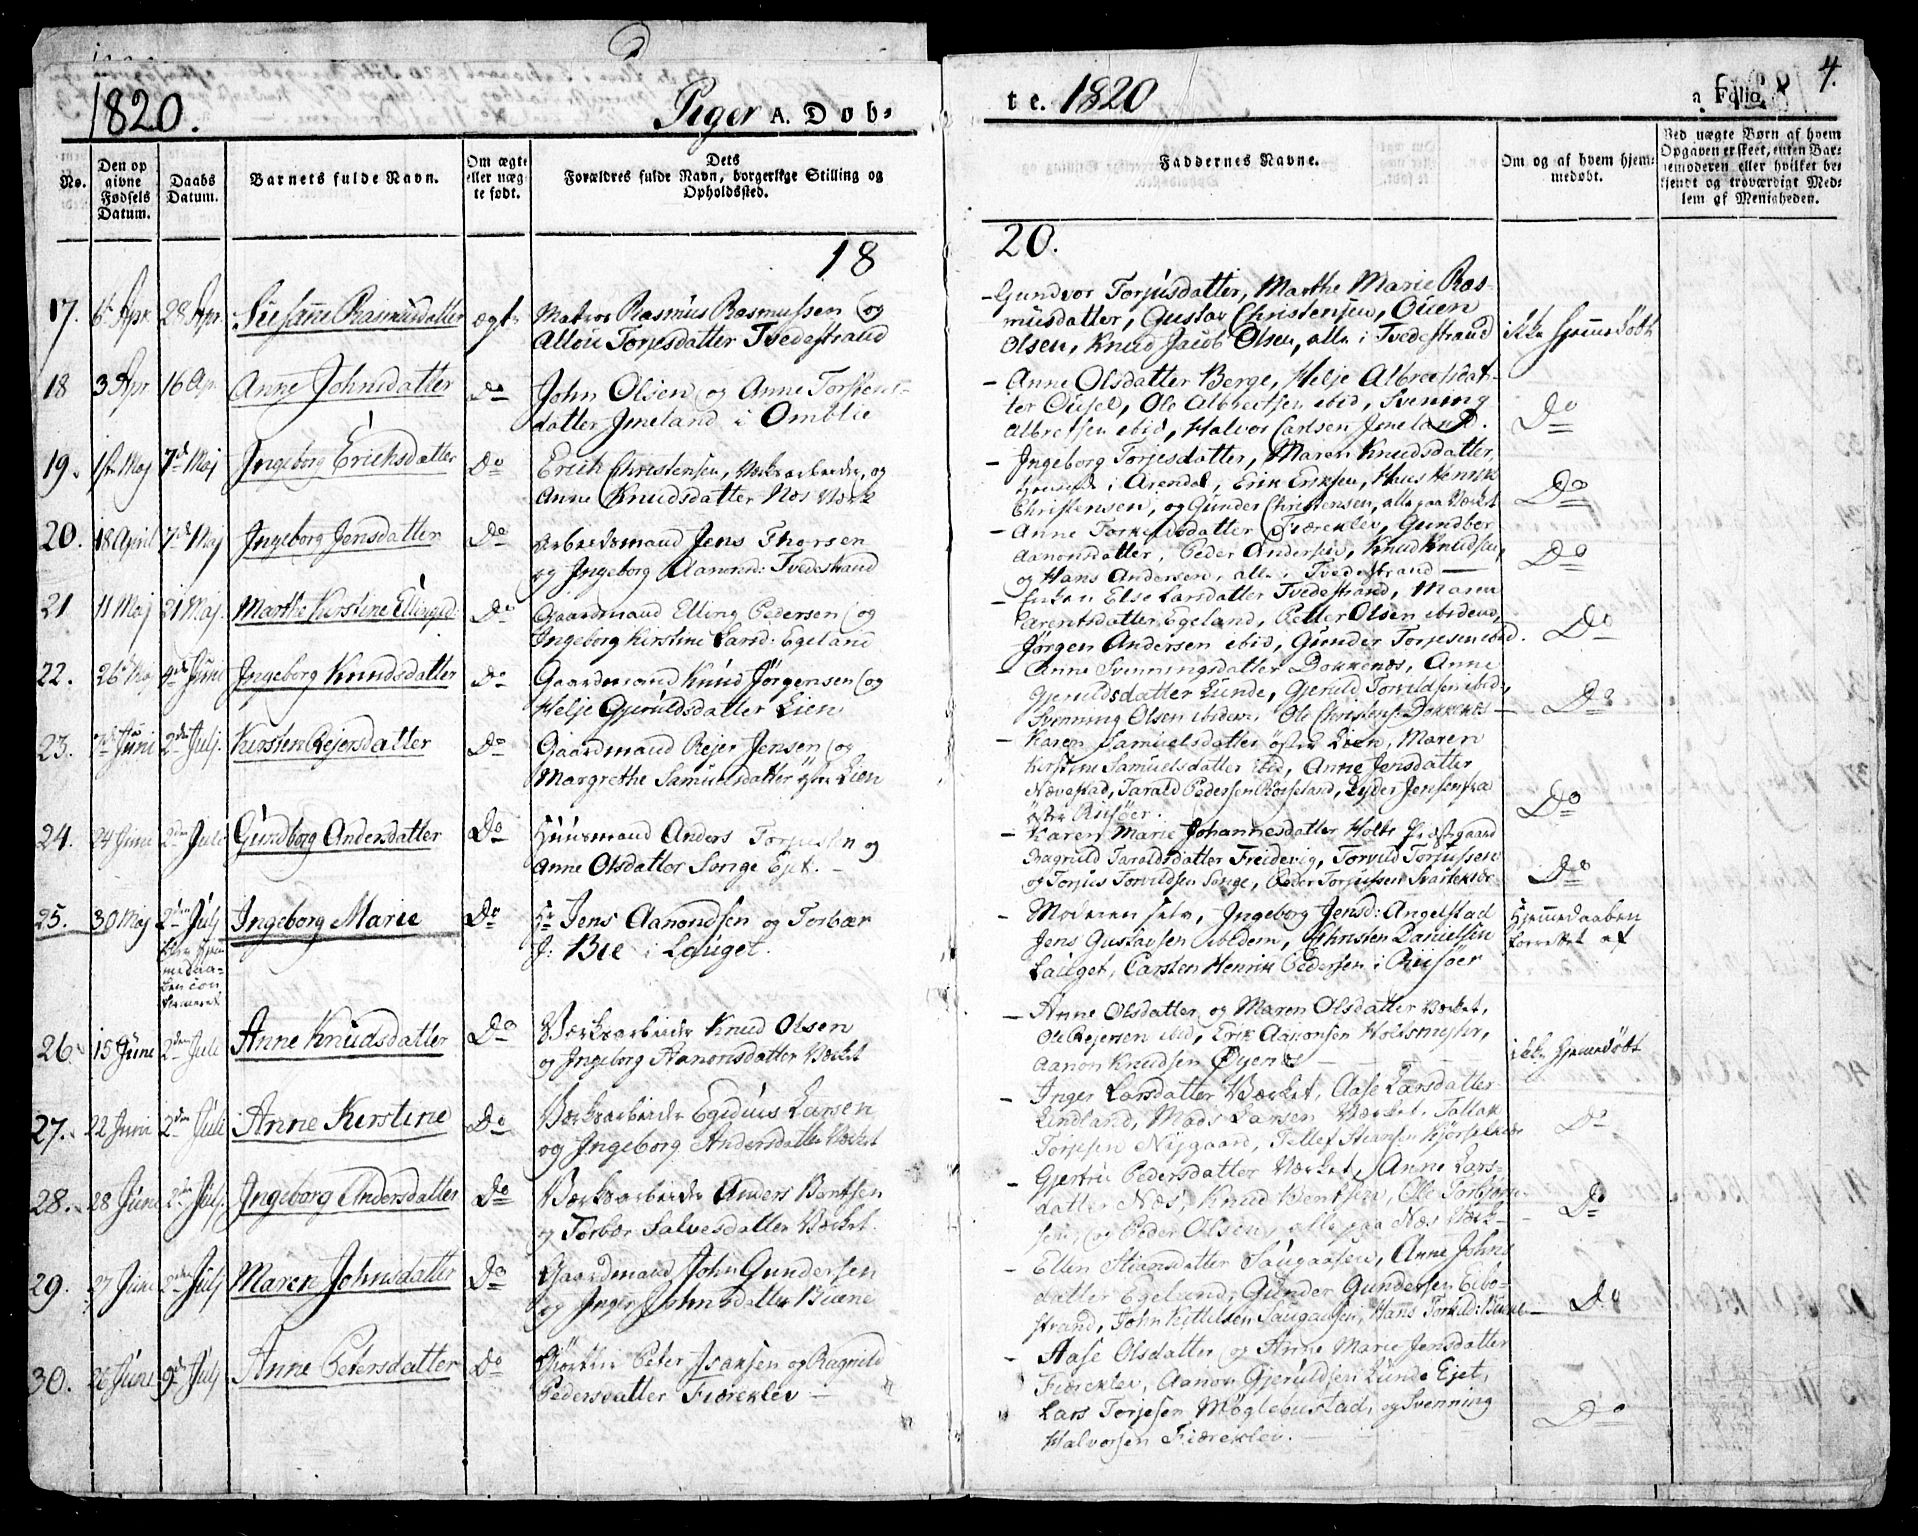 1820.
Piger A. Døb-
te. 1820
a Folio
4.
No.
Den op
givne
Fødsels
Datum.
Daabs
Datum.
Barnets fulde Navn.
Om ægte
eller uæg-
te født.
Dets
Forældres fulde Navn, borgerlige Stilling og
Opholdssted.
Faddernes Navne.
Om og af hvem hjem-
medøbt.
Ved uægte Børn af hvem
Opgaven er skeet, enten Bar-
nemoderen eller hvilket be-
kjendt og troværdigt Med-
lem af Menigheden.
18
20.
17. 6 Apr 28 Apr. Susanne Rasmusdatter ægte
Matros Rasmus Rasmussen og
Torjesdatter Tvedestrand
Gundvor Torjusdatter, Marthe Marie Ras-
musdatter, Gustav Christensen, Ouen
Olsen, Knud Jacob Olsen, alle i Tvedestrand
ikke hjemmedøbt
18 3 Apr 16 Ap. Anne Johnsdatter Do
John Olsen og Anne Torstens-
datter Jmeland i Omblie
Anne Olsdatter Berge, Helje Albrectsdat-
ter Ousel, Ole Albrectsen ibid, Svening
Albretsen ibid, Halvor Carlsen Jmeland.
Do
19. 1ste Maj 7de Maj Ingeborg Ericksdatter Do
Erich Christensen, Værksarbeider, og
Anne Knudsdatter Næs Værk
Ingeborg Torjesdatter, Maren Knudsdatter,
i Arendal, Erik Eriksen, Hans Henrik
Christensen, og Gunder Christensen, alle paa Værket
Do
20. 18 April 7de Maj Ingeborg Jensdatter Do
Arbeidsmand Jens Thorsen
og Ingeborg Aanond: Tvedestrand
Anne Torkelsdatter Fiæreklev, Gundbor
Aanonsdatter, Peder Andersen, Knud Knudsen,
og Hans Andersen, alle i Tvedestrand
Do
21. 11 Maj 21 Maj. Marthe Kirstine Ellingsd: Do
Gaardmand Elling Pedersen og
Ingeborg Kirstine Larsd: Egeland
Enken Else Larsdatter Tvedestrand, Maren
Arentsdatter Egeland, Petter Olsen ibidem,
Jørgen Andersen ibid, Gunder Torjesen ibid.
Do
22. 26 Ma 4de June Ingeborg Knudsdatter Do
Gaardmand Knud Jørgensen og
Helje Gjeruldsdatter Lien
Anne Svenningsdatter Dokkenes, Anne
Gjeruldsdatter Lunde, Gjeruld Torvildsen ibid.,
Svenning Olsen ibidem, Ole Christens: Dokkenes
Do
23. Juni 2den Julj. Kirsten Rejersdatter Do
Gaardmand Rejer Jensen og
Margrethe Samuelsdatter østre Lien
Karen Samuelsdatter østre Lien, Maren
Kirstine Samuelsdatter ibid, Anne Jensdatter
Nævestad, Tarald Pedersen Røiseland, Lyder Jensen fra
østre Riisøer.
Do
24. 24 June 2den Juli Gundborg Andersdatter Do
Huusmand Anders Torjussen og
Anne Olsdatter Songe Ejet.
Karen Marie Johannesdatter Holte Præstgaard
Ragnild Taraldsdatter Freidevig, Torvild Torjussen
og Torjus Torvildsen Songe, Peder Torjussen Svartekær
Do
25. 30 Maj 2den Julj Ingeborg Marie Do
blev Hjem-
medaa-
ben con
firmeret
Hr Jens Aanondsen og Torbær
J: Bie i Lauget.
Moderen selv, Ingeborg Jensd: Angelstad
Jens Gustavsen ibidem, Christen Danielsen
Lauget, Carsten Henrik Pedersen i Riisøer
Hjemmedaaben
forrettet af
26 15 June 2den Juli Anne Knudsdatter Do
Værksarbeider Knud Olsen
og Ingeborg Aanonsdatter Værket
Anne Olsdatter og Maren Olsdatter Værket,
Ole Rejersen ibid, Erik Aanonsen Holtsmyhr,
Aanon Knudsen Øyene
ikke hjemmedøbt
27. 22 Juni 2den Juli Anne Kirstine Do
Værksarbeider Egidius Larsen
og Ingeborg Andersdatter Værket
Inger Larsdatter Værket, Aase Larsdatter
Lindland, Mads Larsen Værket, Tallak
Torjesen Nisgaard, Tellef Steansen Kjørsekkær
Do
28. 28 June 2den Julj. Ingeborg Andersdatter Do
Værksarbeider Anders Bentsen
og Torbær Salvesdatter Værket.
Gjertru Pedersdatter Værket, Anne Lars-
datter Næs, Knud Bentsen, Ole Torbjørn-
sen, og Peder Olsen, alle paa Næs Værk
Do
29. 27 June 2den Julj Maren Johnsdatter Do
Gaardmand John Gundersen
og Inger Johnsdatter Buene
Ellen Steansdatter Saugaasen, Anne Johns
datter Egelund, Gunder Gundersen Eibo-
strand, John Kittelsen Saugaasen, Hans Torkild: Buene
Do
30. 26 June 9de Julj Anne Petersdatter Do
Peter Isaksen og Ragnild
Pedersdatter Fiæreklev
Aase Olsdatter og Anne Marie Jensdatter
Fiæreklev, Aanon Gjeruldsen Lunde Ejet,
Lars Torjesen Møglebustad, og Svenning
Halvorsen Fiæreklev.
Do